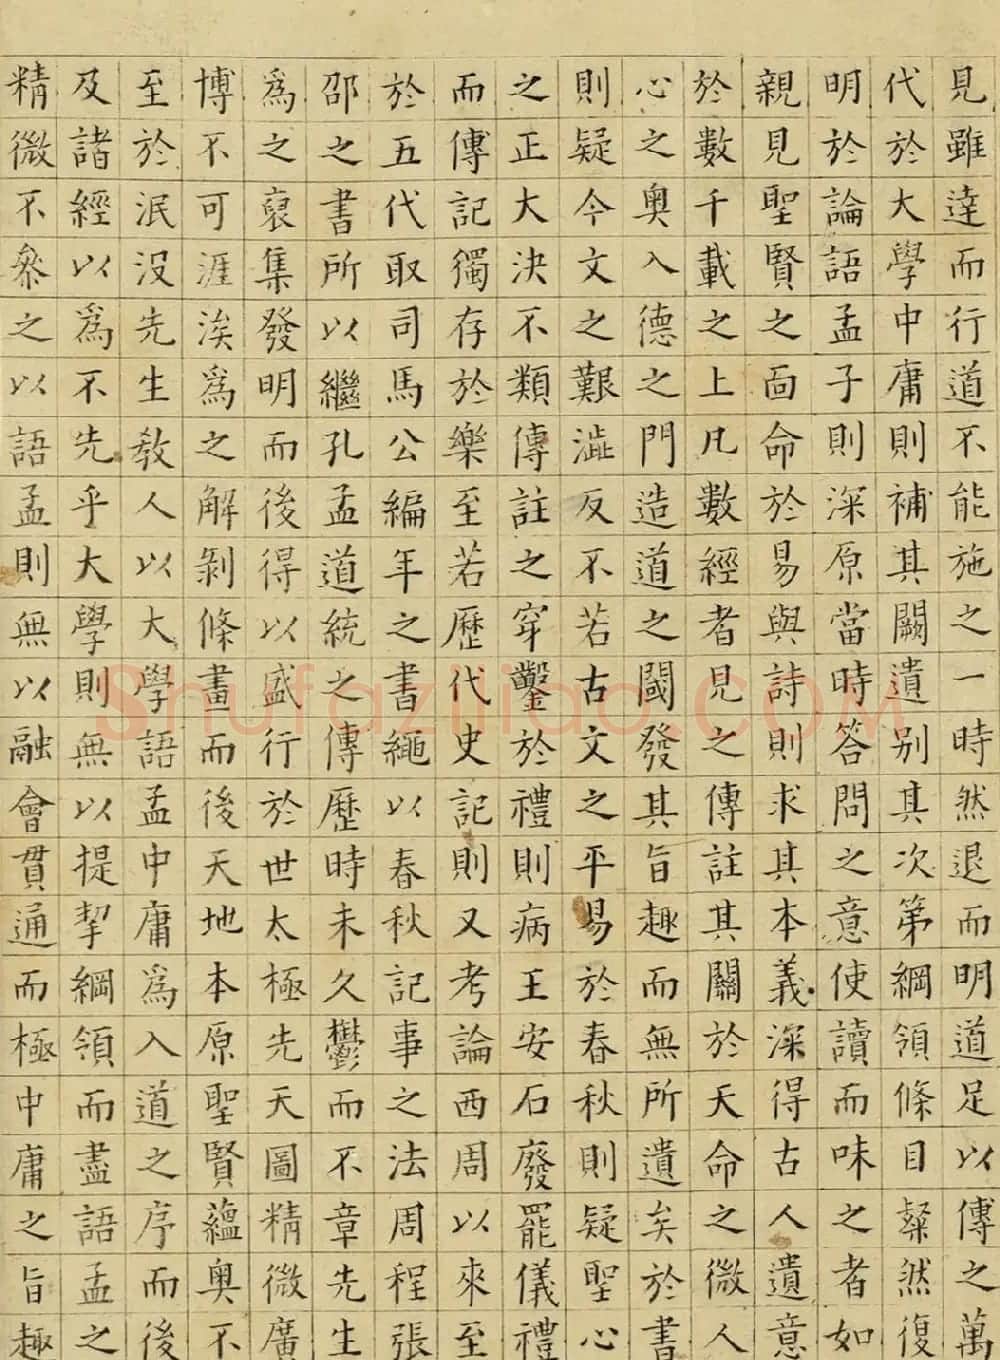 見雖達而行道不能施之一時然退而明道足以傳之萬
代於大學中庸則補其闕遺别其次第綱領條目粲然復
明於論語孟子則深原當時答問之意使讀而味之者如
親見聖賢之面命於易與詩則求其本義深得古人遺意
於數千載之上凡數經者見之傳註其關於天命之微人
心之奧入德之門造道之閫發其旨趣而無所遺矣於書
則疑今文之艱澁反不若古文之平易於春秋則疑聖心
之正大決不類傳註之穿鑿於禮則病王安石廢罷儀禮
而傳記獨存於樂至若歷代史記則又考論西周以來至
於五代取司馬公編年之書繩以春秋記事之法周程張
邵之書所以繼孔孟道統之傳歷時未久鬱而不章先生
為之裒集發明而後得以盛行於世太極先天圖精微廣
博不可涯涘為之解剝條畫而後天地本原聖賢蘊奧不
至於泯没先生教人以大學語孟中庸為入道之序而後
及諸經以為不先乎大學則無以提挈綱領而盡語孟之
精微不叅之以語孟則無以融會貫通而極中庸之旨趣
Shufaziliao.COM